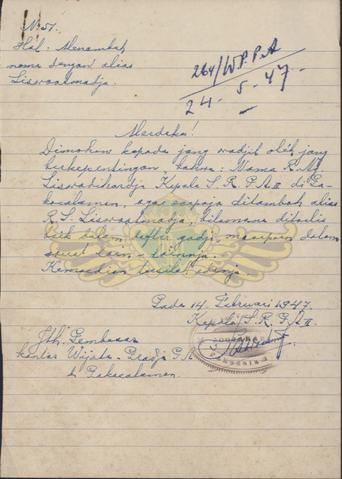 No: 51.
Hal: Menambah
nama dengan alias
Siswaatmadja.
264/W.P.P.A
24-5-47-
Merdeka!
Dimohon kepada jang wadjib oléh jang
berkepentingan, bahwa: Nama R. M.
Siswadihardja Kepala S. R. P. A. II di Pa-
koealaman, agar soepaja ditambah alias
R. S. Siswaatmadja, bilamana ditoelis
baik dalam daftar gadji, maoepoen dalam
soerat lain-lainnja.
Kemoedian
Pada 14 Februari 1947.
Kepala S. R. P. A. II
Jth. Pembesar
kantor Wijata-Pradja P. A
di Pakoealaman.